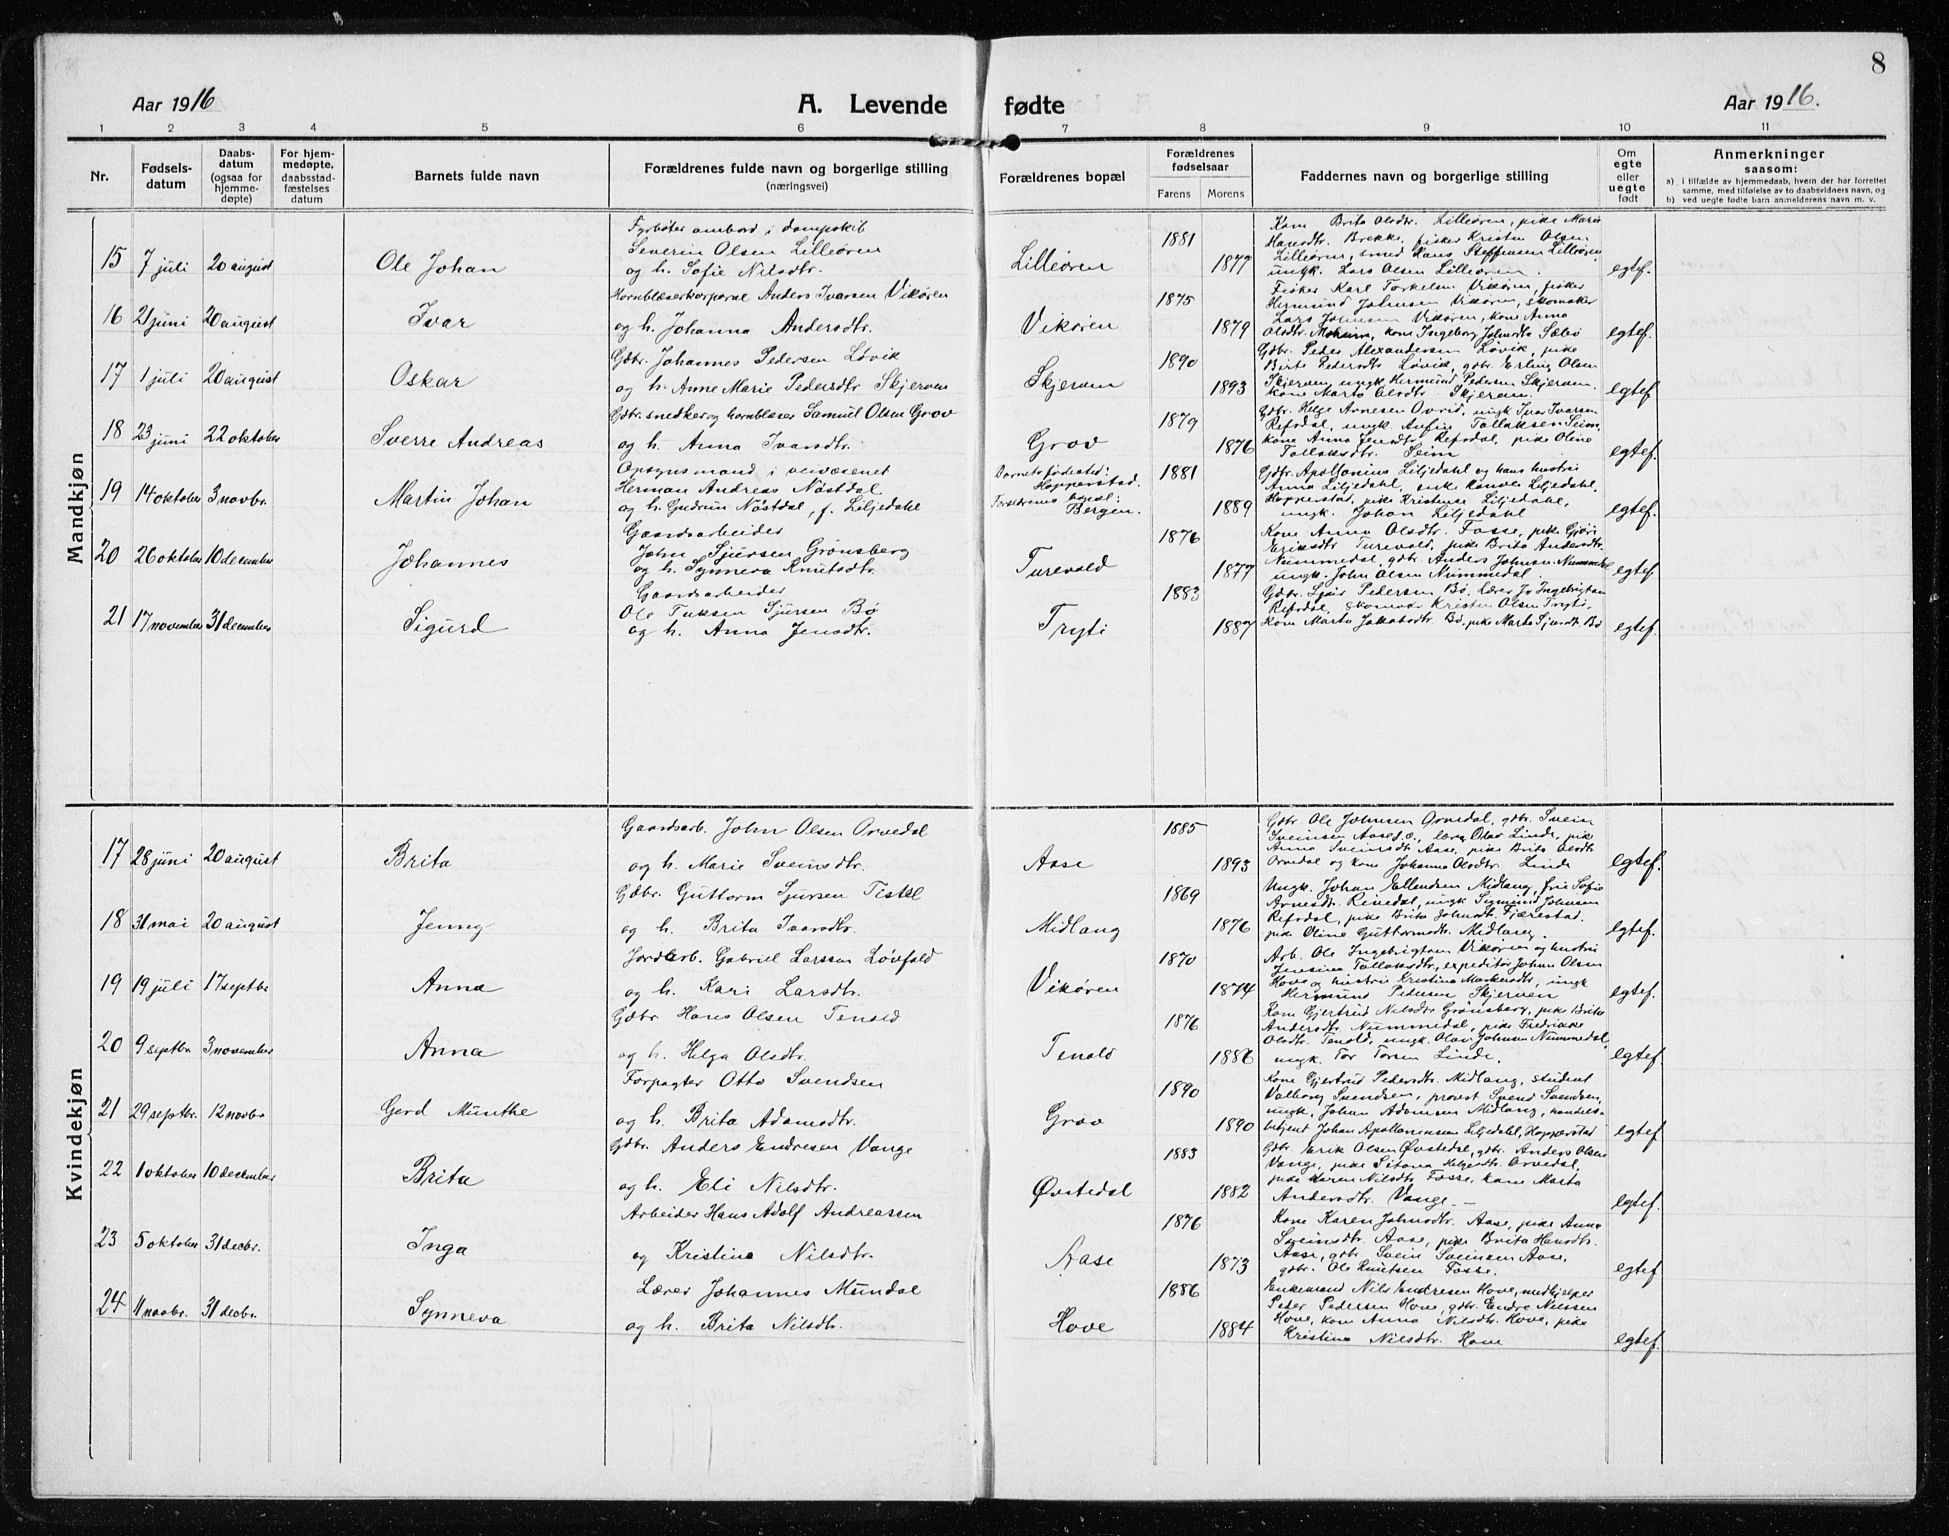 8
Aar 1916
A. Levende fødte
Aar 1916.
1 2 3 4 5 6 7 8 9 10 11
Nr.
Fødsels-
datum
Daabs-
datum
(ogsaa for
hjemme-
døpte)
For hjem-
medøpte,
daabsstad-
fæstelses
datum
Barnets fulde navn
Forældrenes fulde navn og borgerlige stilling
(næringsvei)
Forældrenes bopæl
Forældrenes
fødselsaar
Farens Morens
Faddernes navn og borgerlige stilling
Om
egte
eller
uegte
født
Anmerkninger
saasom:
a) i tilfælde av hjemmedaab, hvem der har forrettet
samme, med tilføielse av to daabsvidners navn, og
b) ved uegte fødte barn anmelderens navn m. v.
Mandkjøn
15 7 juli 20 august Ole Johan
Fyrbøter ombord i dampskib
Severin Olsen Lilleøren
og h. Sofie Nilsdtr.
Lilleøren 1881 1877
Kone Brita Olsdtr. Lilleøren, pike Marie
Hansdtr. Brekke, fisker Kristen Olsen
Lilleøren, smed Hans Steffensen Lilleøren
ungk. Lars Olsen Lilleøren.
egtef.
16 21 juni 20 august Ivar
Hornblæserkorporal Anders Ivarsen Vikøren
og h. Johanna Andersdtr.
Vikøren 1875 1879
Fisker Karl Torkelsen Vikøren, fisker
Hermund Johnsen Vikøren, skomaker
Lars Johnsen Vikøren, kone Anna
Olsdtr. kone Ingeborg Johnsdtr Sæbø
egtef.
17 1 juli 20 august Oskar
Gdbr. Johannes Pedersen Løvik
og h. Anne Marie Pedersdtr Skjerven
Skjerven 1890 1893
Gdbr. Peder Alexandersen Løvik, pike
Birte Pedersdtr Løvik, gdbr. Erling Olsen
Skjerven, ungk Hermund Pedersen Skjerven,
Kone Marta Olsdtr Skjerven.
egtef.
18 23 juni 22 oktober Sverre Andreas
Gdbr. snedker og hornblæser Samuel Olsen Grov
og h. Anna Ivarsdtr.
Grov 1879 1876
Gdbr. Helge Arnesen Ovrid, ungk Ivar Ivarsen
Refsdal, ungk Anfin Tollaksen Seim,
kone Anna Jensdtr Refsdal, pike Oline
Tollaksdtr. Seim
egtef.
19 14 oktober 3 novbr. Martin Johan
Opsynsmand i veivæsenet
Herman Andreas Nøstdal
og h. Gudrun Nøstdal, f. Liljedahl
Barnets fødested:
Hopperstad.
Forældrenes bopæl:
Bergen.
1881 1889
Gdbr. Apollonius Liljedahl og hans hustru
Anna Liljedahl, enke Liljedahl,
Hopperstad, pike Kristense Liljedahl,
ungk. Johan Liljedahl
egtef.
20 26 oktober 10 december Johannes
Gaardsarbeider
John Sjursen Grønsberg
og h. Synneva Knutsdtr.
Turevold 1876 1877
Kone Anna Olsdtr. Fosse, pike Gjøri
Eriksdtr Turevold, pike Brita Andersdtr.
Nummedal, gdbr. Anders Johnsen Nummedal
ungk. John Olsen Nummedal
egtef.
21 17 november 31 december Sigurd
Gaardsarbeider
Ole Tuksen Sjursen Bø
og h. Anna Jensdtr.
Tryti 1883 1887
Gdbr. Sjur Pedersen, Bø, Lærer Jo Ingebrigtsen
Refsdal, skomaker Kristen Olsen Tryti,
Kone Marta Jakobsdtr. Bø, pike Marta Sjursdtr. Bø
egtef.
Kvindekjøn
17 28 juni 20 august Brita
Gaardsarb. John Olsen Orvedal
og h. Marie Sveinsdtr.
Aase 1885 1893
Gdbr Ole Johnsen Orvedal, gdbr. Svein
Sveinsen Aase, lærer Olav Linde, pike
Anna Sveinsdtr Aase, pike Brita Olsdtr
Orvedal og kone Johanna Olsdtr. Linde
egtef.
18 31 mai 20 august Jenny
Gdbr. Guttorm Sjursen Tistel
og h. Brita Ivarsdtr.
Midlang 1869 1876
Ungk. Johan Ellendsen Midlang, frk Sofie
Arnesdtr. Rinedal, ungk Sigmund Johnsen
Refsdal, pike Brita Johnsdtr. Fjærestad.
pike Oline Guttormsdtr. Midlang.
egtef.
19 19 juli 17 septbr Anna
Jordarb. Gabriel Larssen Løvfald
og h. Kari Larsdtr.
Vikøren 1870 1874
Arb. Ole Ingebrigtsen Vikøren og hustru
Jensina Tollaksdtr, expeditør Johan Olsen
Hove og hustru Kristina Markusdtr, ungk
Hermund Pedersen Skjerven
egtef.
20 9 septbr. 3 november Anna
Gdbr Hans Olsen Tenold
og h. Helga Olsdtr.
Tenold 1876 1886
Kone Gjertrud Nilsdtr Grønsberg, pike Brita
Andersdtr. Nummedal, pike Fredrikke
Olsdtr. Tenold, ungk. Olav Johnsen Nummedal,
ungk. Tor Torsen Linde.
egtef.
21 29 septbr. 12 novbr Gerd Munthe
Forpagter Otto Svendsen
og h. Brita Adamsdtr.
Grov 1890 1890
Kone Gjertrud Pedersdtr. Midlang, student
Valborg Svendsen, provst Svend Svendsen,
ungk. Johan Adamsen Midlang, handels-
betjent Johan Apolloniussen Liljedahl, Hopperstad
egtef
22 1 oktober 10 december Brita
Gdbr. Anders Endresen Vange
og h. Eli Nilsdtr.
Øvstedal 1883 1882
Gdbr. Erik Olsen Øvstedal, gdbr. Anders Olsen
Vange, pike Sitana Helgesdtr. Orvedal,
pike Karen Nilsdtr Fosse, kone Marta
Andersdtr. Vange.
egtef.
23 5 oktober 31 decbr. Inga
Arbeider Hans Adolf Andreassen
og Kristina Nilsdtr.
Aase 1876 1873
Kone Karen Johnsdtr. Aase, pike Anna
Sveinsdtr. Aase, pike Brita Hansdtr.
Aase, gdbr. Svein Sveinsen Aase,
gdbr. Ole Knutsen Fosse.
egtef
24 11 novbr. 31 decbr. Synneva
Lærer Johannes Mundal
og h. Brita Nilsdtr.
Hove 1886 1884
Enkemand Nils Endresen Hove, medhjelper
Peder Pedersen Hove, gdbr. Endre Nilssen
Hove, kone Anna Nilsdtr. Hove, pike
Kristina Nilsdtr. Hove
egtef.